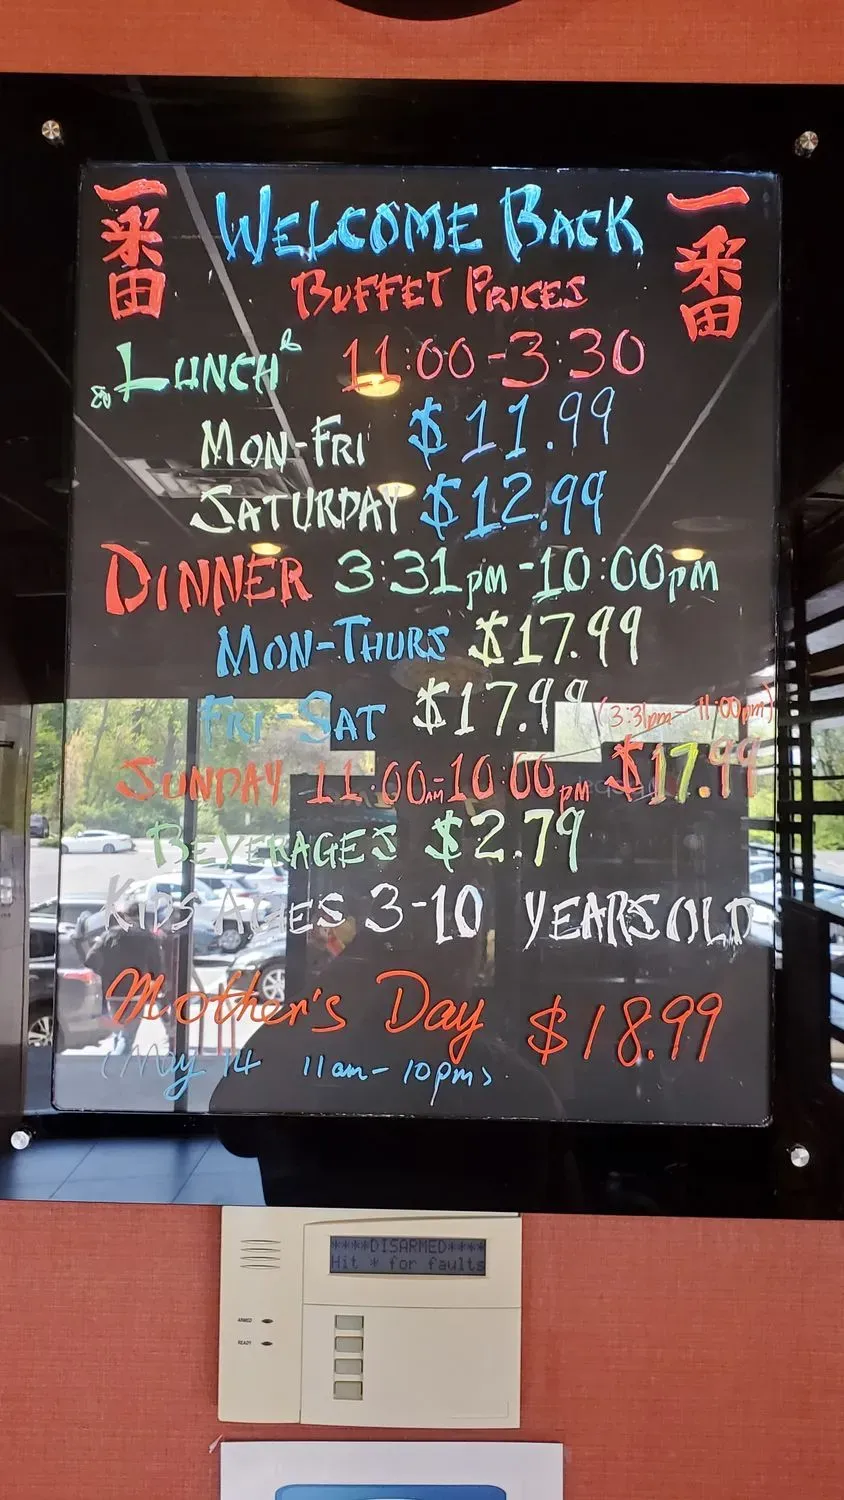 一番 WELCOME BACK 一番
BUFFET PRICES
LUNCH 11:00-3:30
MON-FRI $11.99
SATURDAY $12.99
DINNER 3:31pm-10:00pm
MON-THURS $17.99
FRI-SAT $17.99 (3:31pm-11:00pm)
SUNDAY 11:00AM-10:00PM $17.99
BEVERAGES $2.79
KIDS AGES 3-10 YEARS OLD
Mother's Day $18.99
(May 14 11am-10pm)
****DISARMED****
Hit * for faults
ARMED
READY